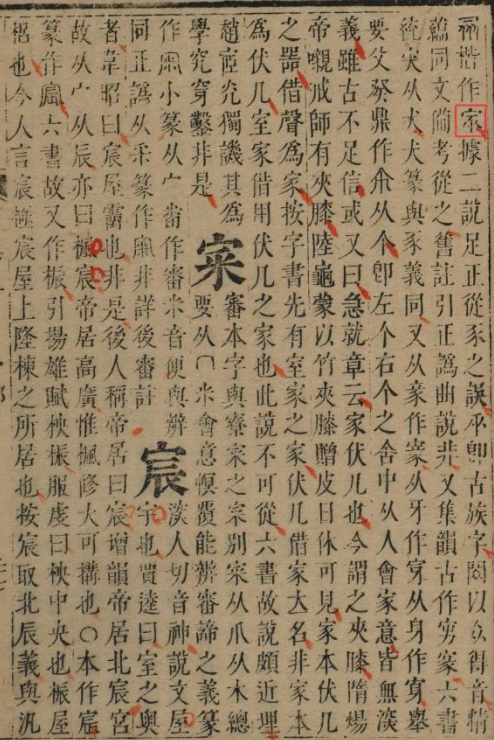 楷作宊據二說足正從豕之誤卽古族字以众得音精
蘊同文備考從之舊註引正譌曲說非又集韻古作篆六書
統宊从犬犬篆與豕義同又从豪作从牙作穿从身作舉
要父癸鼎作从个卽左个右个之舍中从人會家意皆無㴱
義雖古不足信或又曰急就章云家伏几也今謂之夾膝隋煬
帝嚫戒師有夾膝陸龜蒙以竹夾膝贈皮日休可見家本伏几
之噐借聲爲家按字書先有室家之家伏几借家大名非家本
爲伏几室家借用伏几之家也此說不可從六書故說頗近理
趙宧光獨譏其爲
學究穿鑿非是
宷
審本字與寮宷之宷別宷从爪从木總
要从冖米會意幎覆能辨審諦之義篆
作小篆从宀畨作審米音便與辨
同正譌从釆篆作非詳後審註
宸
㴱人切音神說文屋
宇也賈逵曰室之奧
者韋昭曰宸屋霤也非是後人稱帝居曰宸增韻帝居北宸宮
故从宀从辰亦曰楓宸帝居高廣惟楓修大可搆也○本作宸
篆作六書故又作桭引揚雄賦柍桭服虔曰柍中央也桭屋
梠也今人言宸極宸屋上隆棟之所居也按宸取北辰義與汎